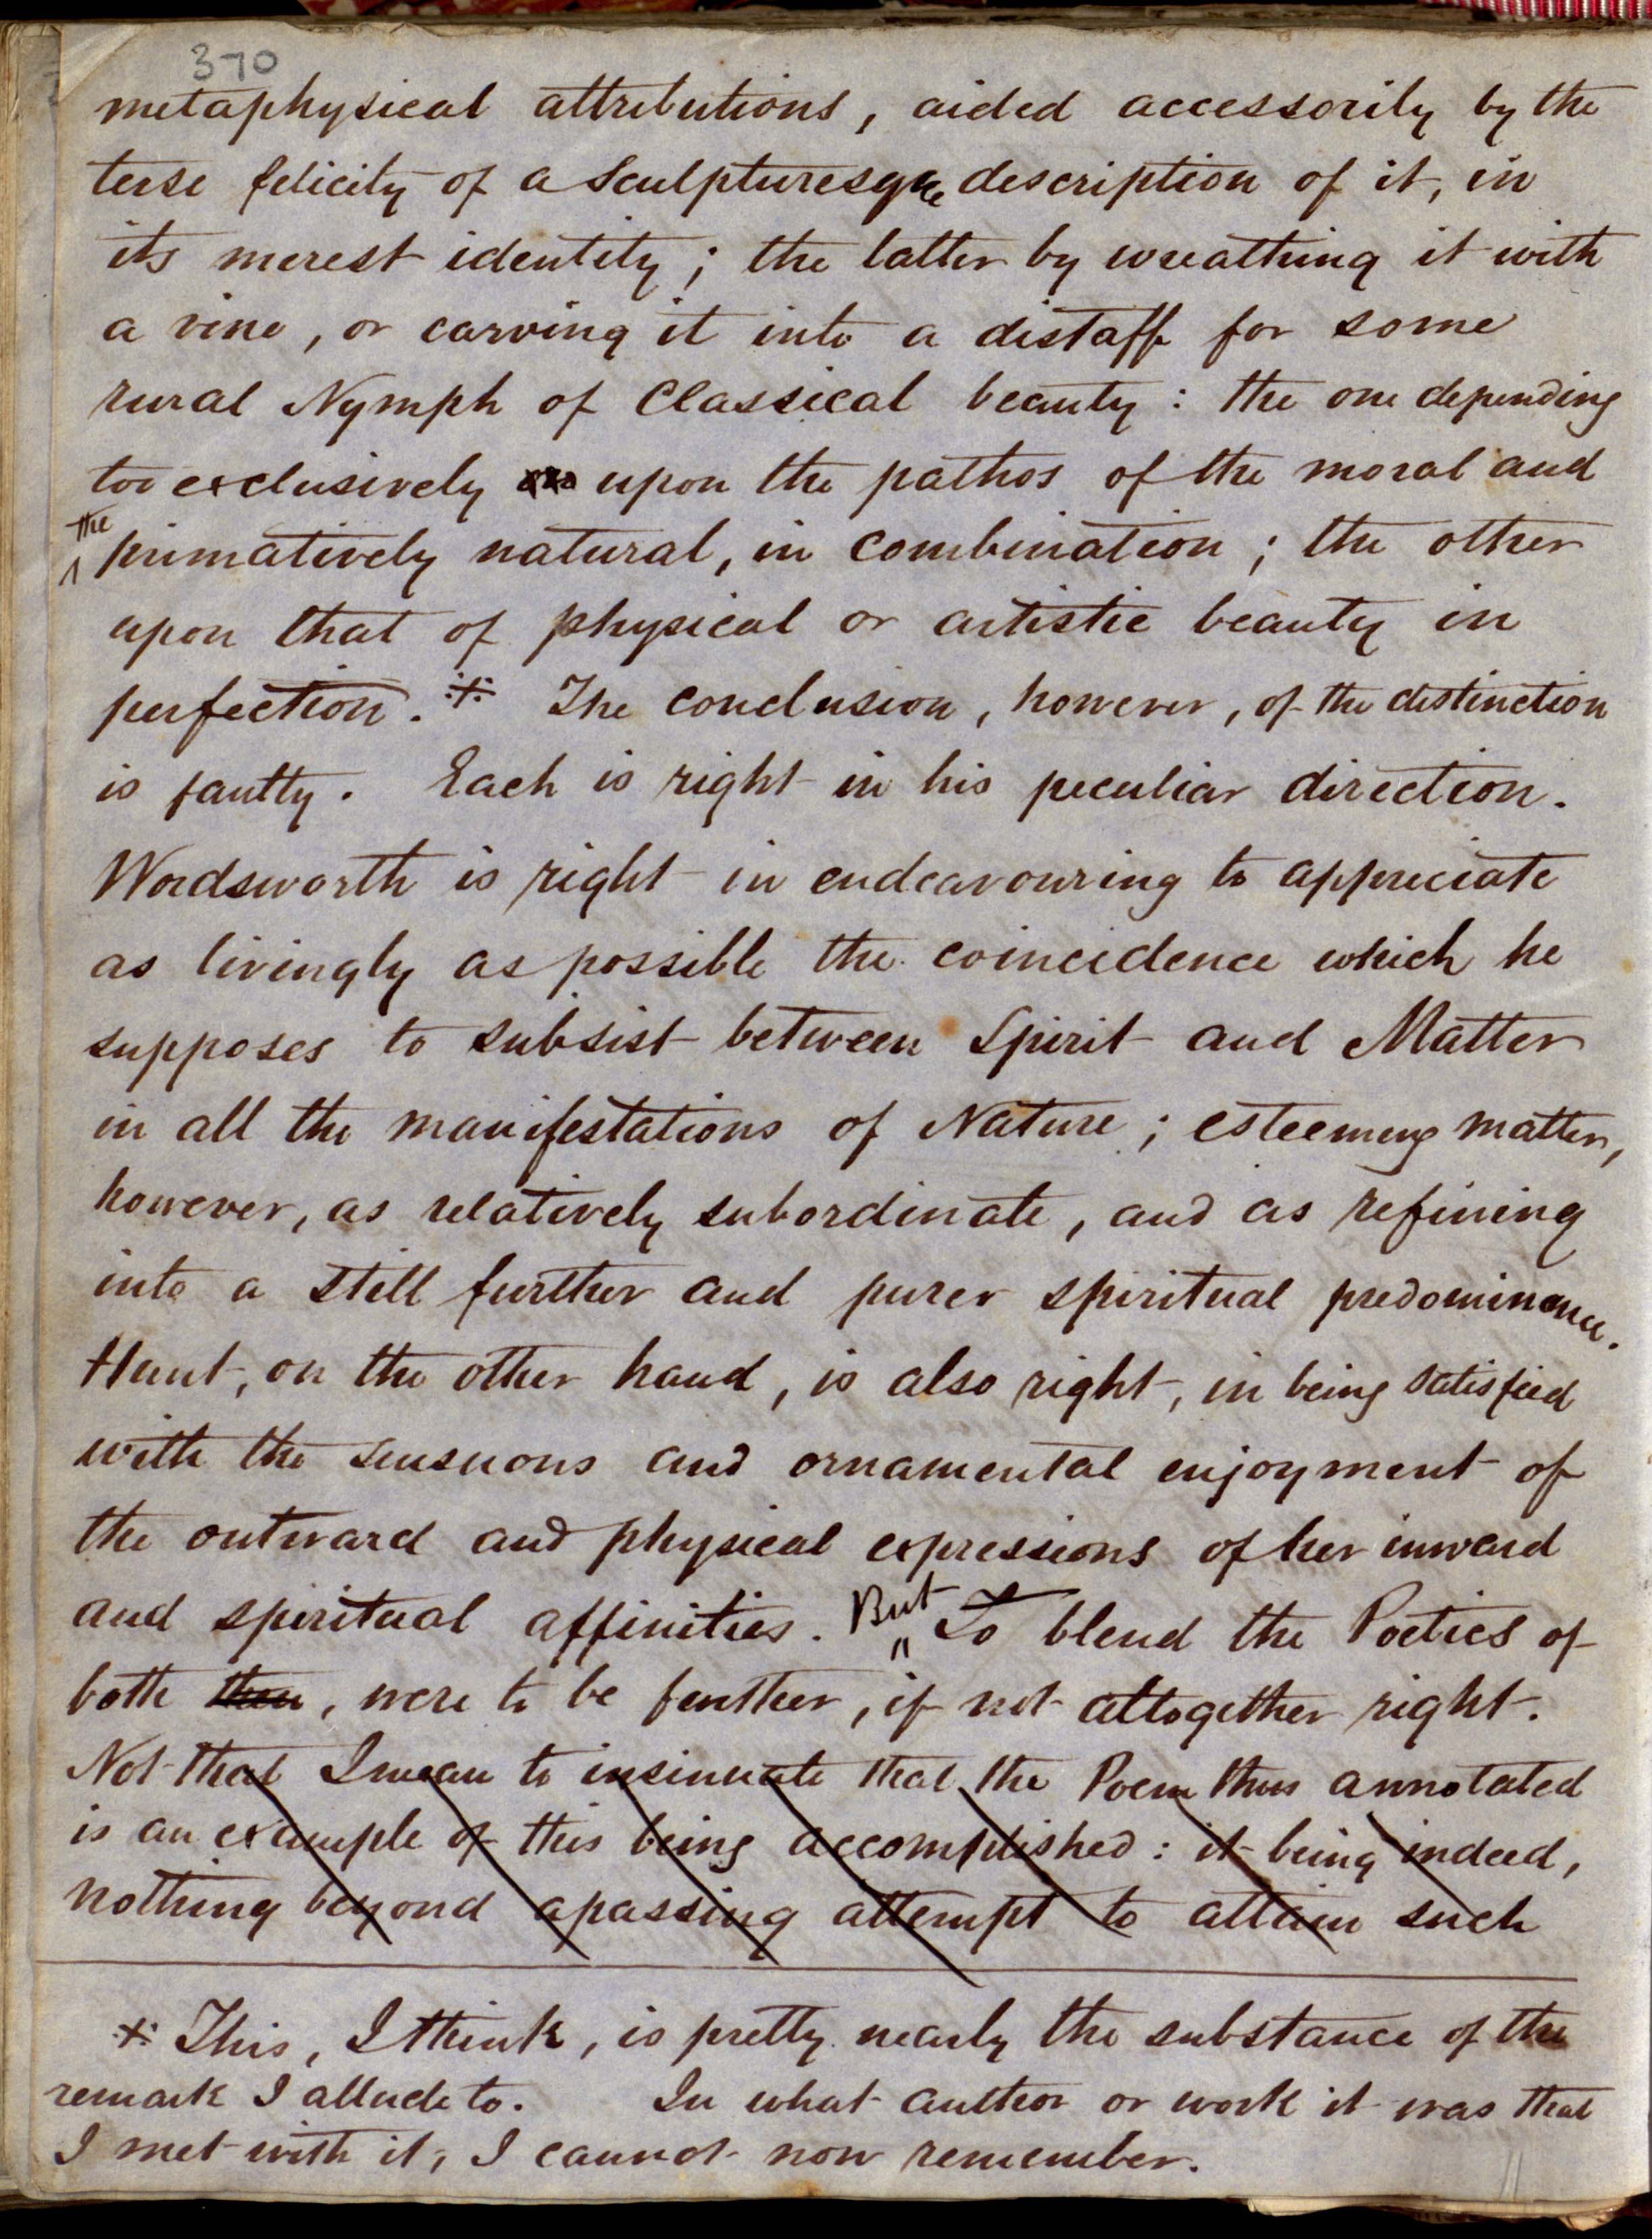 370
metaphysical attributions, aided accessorily by the
terse felicity of a Sculpturesque description of it, in
its merest identity; the latter by wreathing it with
a vine, or carving it into a distaff for some
rural Nymph of Classical beauty: the one depending
too exclusively upon the pathos of the moral and
the
primatively natural, in combination; the other
upon that of physical or artistic beauty in
perfection.※ The conclusion, however, of the distinction
is faulty. Each is right in his peculiar direction.
Wordsworth is right in endeavouring to appreciate
as livingly as possible the coincidence which he
supposes to subsist between Spirit and Matter
in all the manifestations of Nature; esteeming matter,
however, as relatively subordinate, and as refining
into a still further and purer spiritual predominance.
Hunt, on the other hand, is also right, in being satisfied
with the sensuous and ornamental enjoyment of
the outward and physical expressions of her inward
and spiritual affinities. But To blend the Poetics of
both then, were to be further, if not altogether right.
Not that I mean to insinuate that the Poem thus annotated
is an example of this being accomplished: it being indeed,
nothing beyond a passing attempt to attain such
※ This, I think, is pretty nearly the substance of the
remark I allude to. In what author or work it was that
I met with it, I cannot now remember.